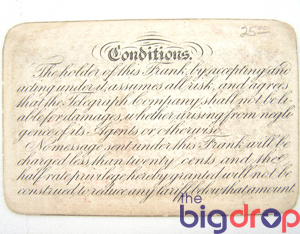 25
Conditions.
The holder of this Frank, by accepting and
acting under it, assumes all risk, and agrees
that the Telegraph Company shall not be li-
able for damages, whether arising from negli-
gence of its Agents or otherwise.
No message sent under this Frank will be
charged less than twenty cents and the
half rate privilege hereby granted will not be
construed to reduce any tariff below that amount.
the
bigdrop